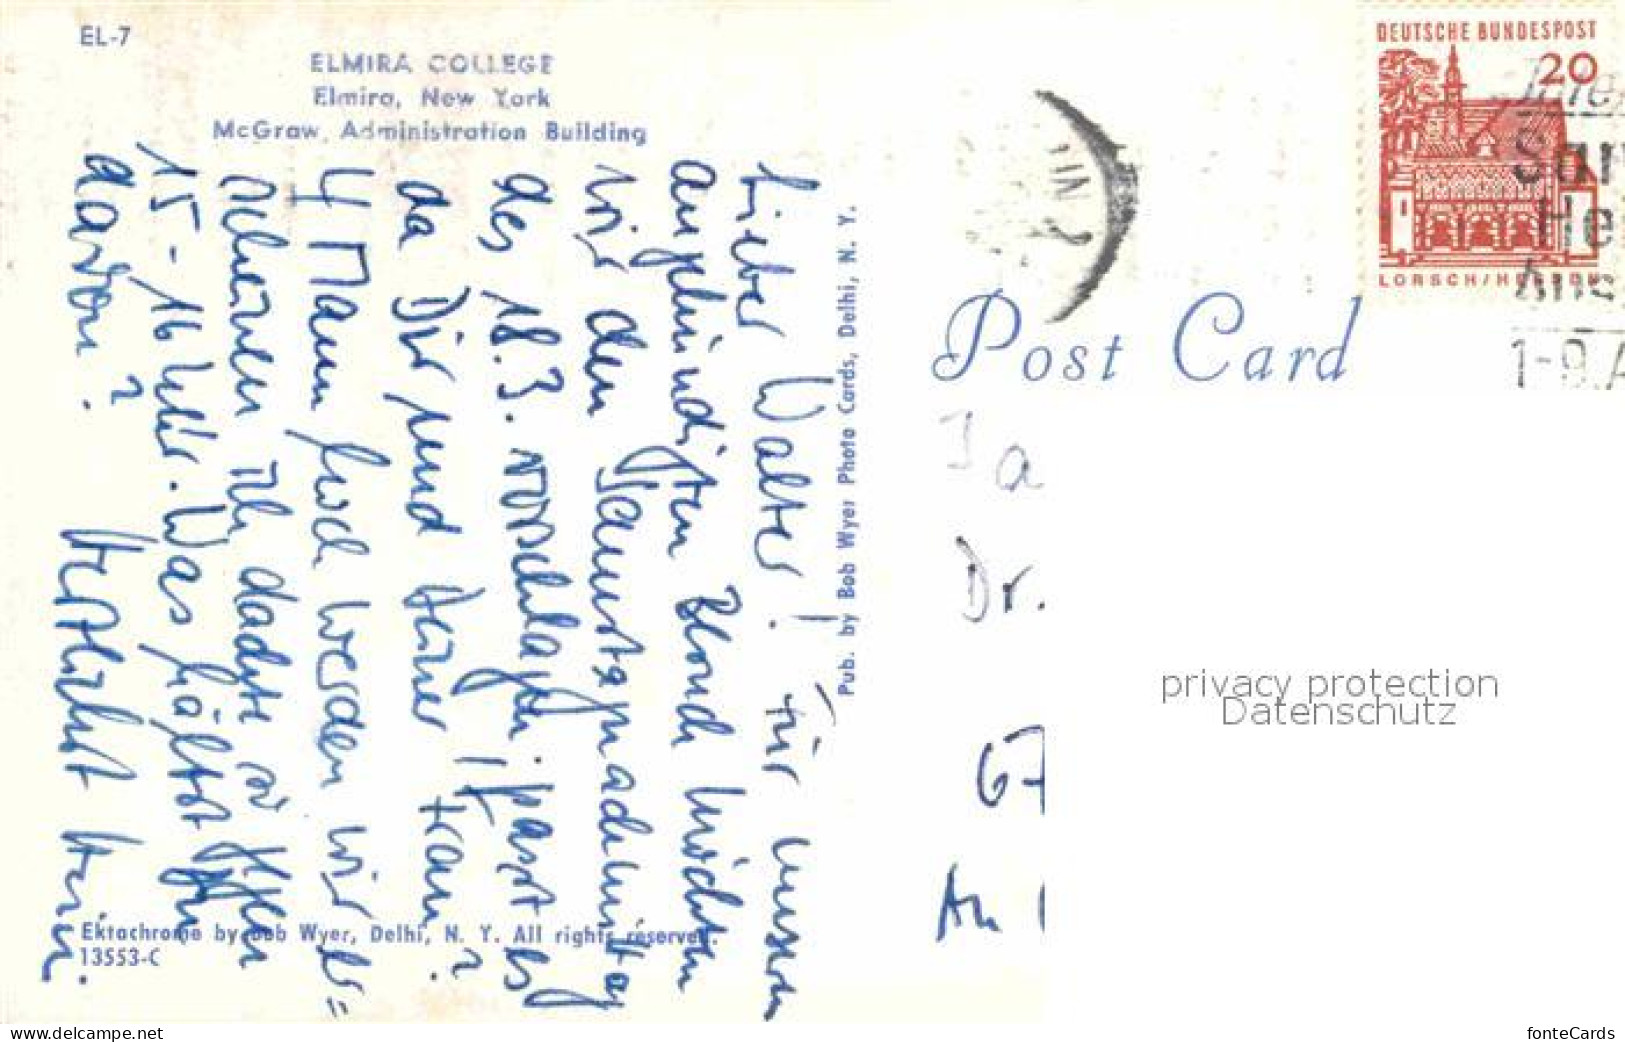 EL-7
ELMIRA COLLEGE
Elmira, New York
McGraw Administration Building
Lieber Walter! Für unseren
angekündigten Besuch möchten
wir den Samstagnachmittag
des 18.3. vorschlagen; passt es
da Dir und Deiner Frau?
4 Mann hoch werden wir er=
scheinen. Ich dachte so gegen
15-16 Uhr. Was hältst Du
davon?
Herzlichst
Pub. by Bob Wyer Photo Cards, Delhi, N. Y.
Ektachrome by Bob Wyer, Delhi, N. Y. All rights reserved.
13553-C
Post Card
DEUTSCHE BUNDESPOST
20
LORSCH/HESSEN
1-9.
Dr.
67
An
privacy protection
Datenschutz
www.delcampe.net
fonteCards